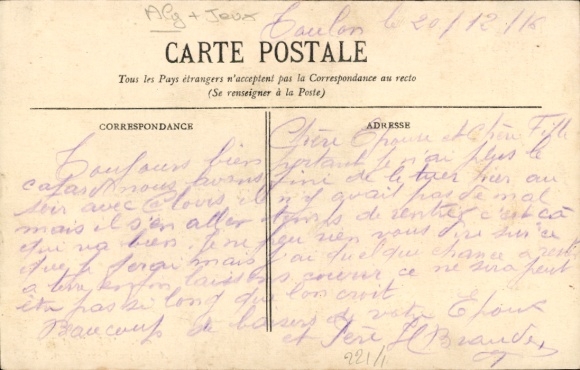 Alg + Jeux
Toulon le 20/12/16
CARTE POSTALE
Tous les Pays étrangers n'acceptent pas la Correspondance au recto
(Se renseigner à la Poste)
CORRESPONDANCE
ADRESSE
Chère Epouse et Chère Fille
Toujours bien portant je n'ai plus le
cafard nous avons fini de le tuer hier au
soir avec Clovis il n'y avait pas de mal
mais il s'en aller temps de rentrer c'est ça
qui va bien. Je ne peu rien vous dire sur ce
que je ferai mais j'ai quelque chance a
enfin laissons courir ce ne sera peut
être pas si long que l'on croit
Beaucoup de baisers de votre Epoux
et Père H Braud
221/1